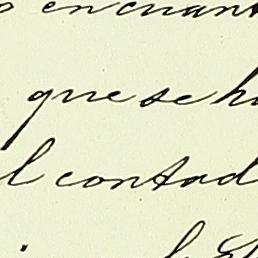 en cuant
que se h
l contad